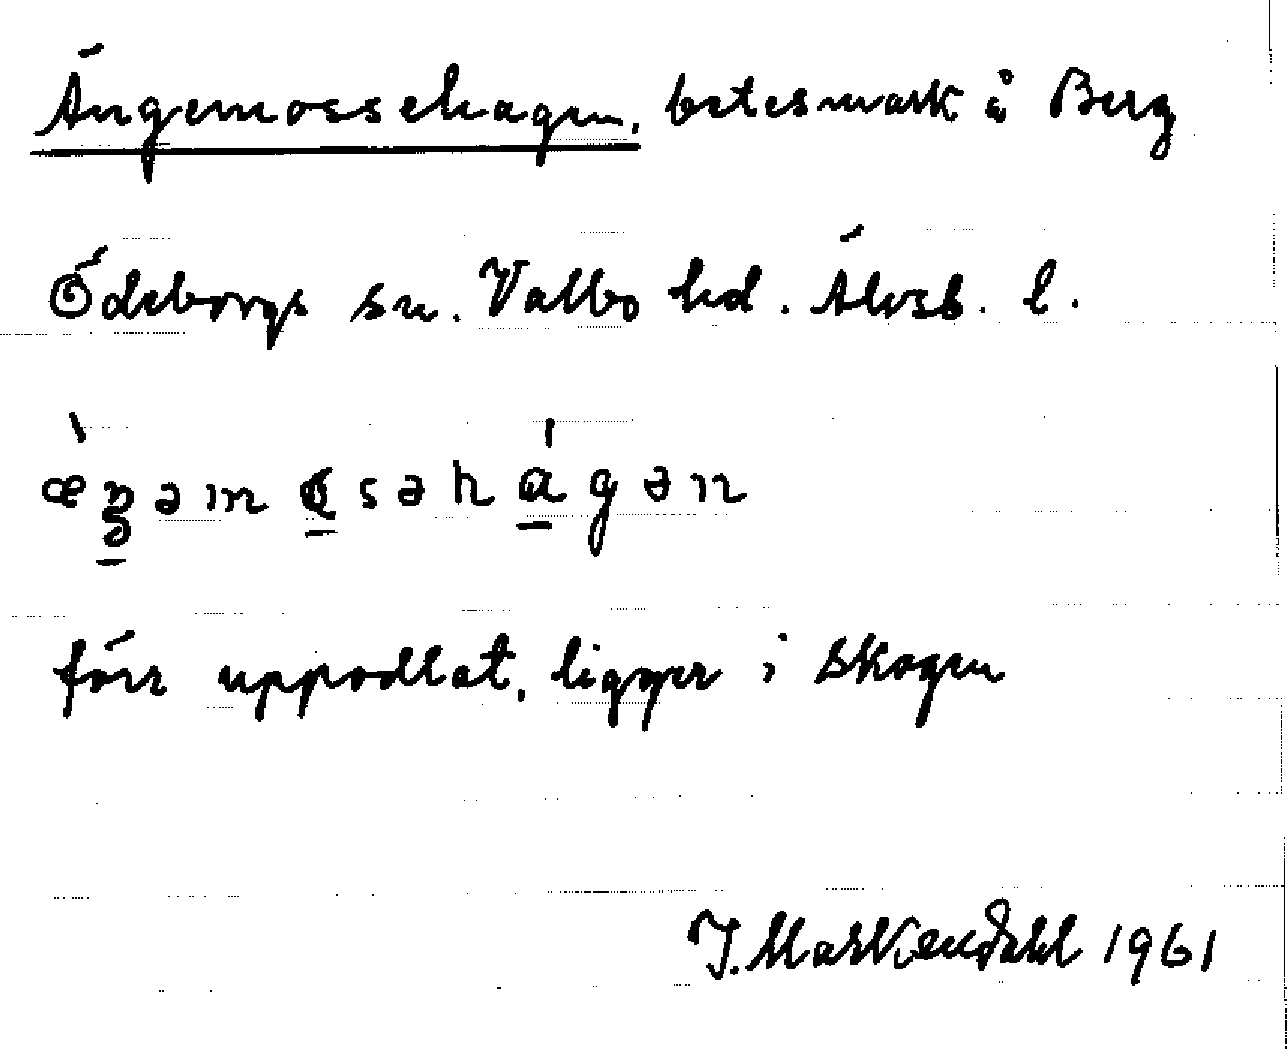 Ängemossehagen, betesmark å Berg
Ödeborgs sn. Valbo hd. Älvsb. l.
förr uppodlat, ligger i skogen
J. Markendahl 1961